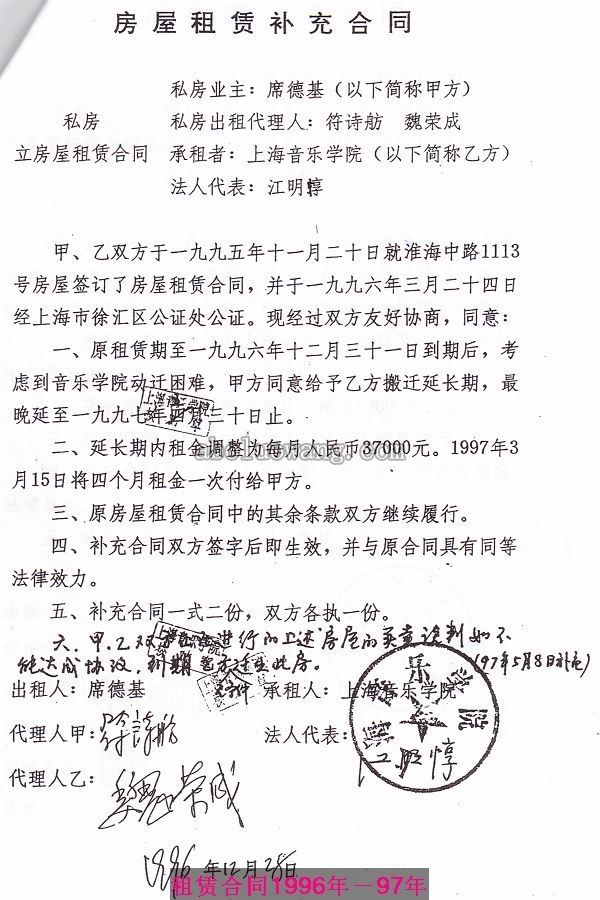 房屋租赁补充合同
私房业主：席德基（以下简称甲方）
私房 私房出租代理人：符诗舫 魏荣成
立房屋租赁合同 承租者：上海音乐学院（以下简称乙方）
法人代表：江明惇
甲、乙双方于一九九五年十一月二十日就淮海中路1113
号房屋签订了房屋租赁合同，并于一九九六年三月二十四日
经上海市徐汇区公证处公证。现经过双方友好协商，同意：
一、原租赁期至一九九六年十二月三十一日到期后，考
虑到音乐学院动迁困难，甲方同意给予乙方搬迁延长期，最
晚延至一九九七年四月三十日止。
二、延长期内租金调整为每月人民币37000元。1997年3
月15日将四个月租金一次付给甲方。
三、原房屋租赁合同中的其余条款双方继续履行。
四、补充合同双方签字后即生效，并与原合同具有同等
法律效力。
五、补充合同一式二份，双方各执一份。
六、甲、乙双方 进行的上述房屋的买卖谈判如不
能达成协议， 迁出此房。 (97年5月8日补充)
出租人：席德基 承租人：上海音乐学院
代理人甲：符诗舫 法人代表：江明惇
代理人乙：魏荣成
1996年12月28日
租赁合同1996年－97年